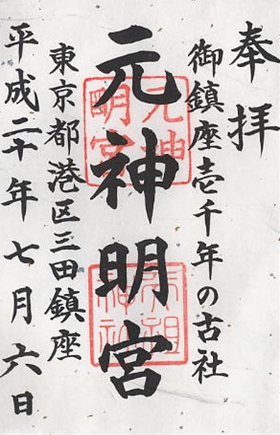 奉拝
御鎮座壱千年の古社
元神明宮
東京都港区三田鎮座
平成二十年七月六日
元神明宮